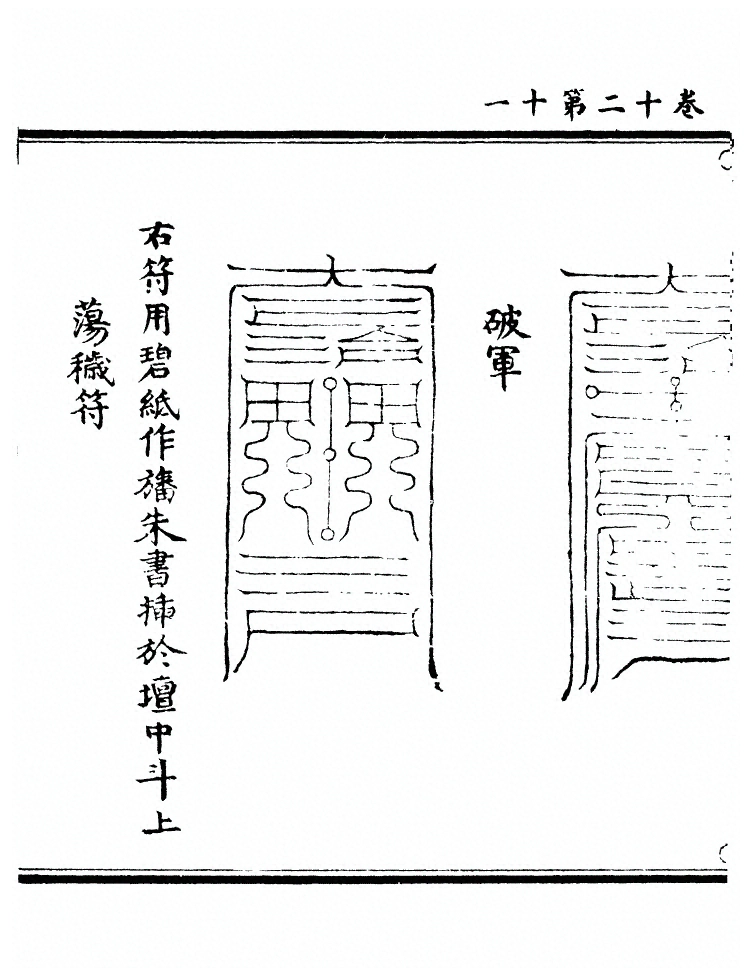 卷十二第十一
破軍
右符用碧紙作旛朱書揷於壇中斗上
蕩穢符